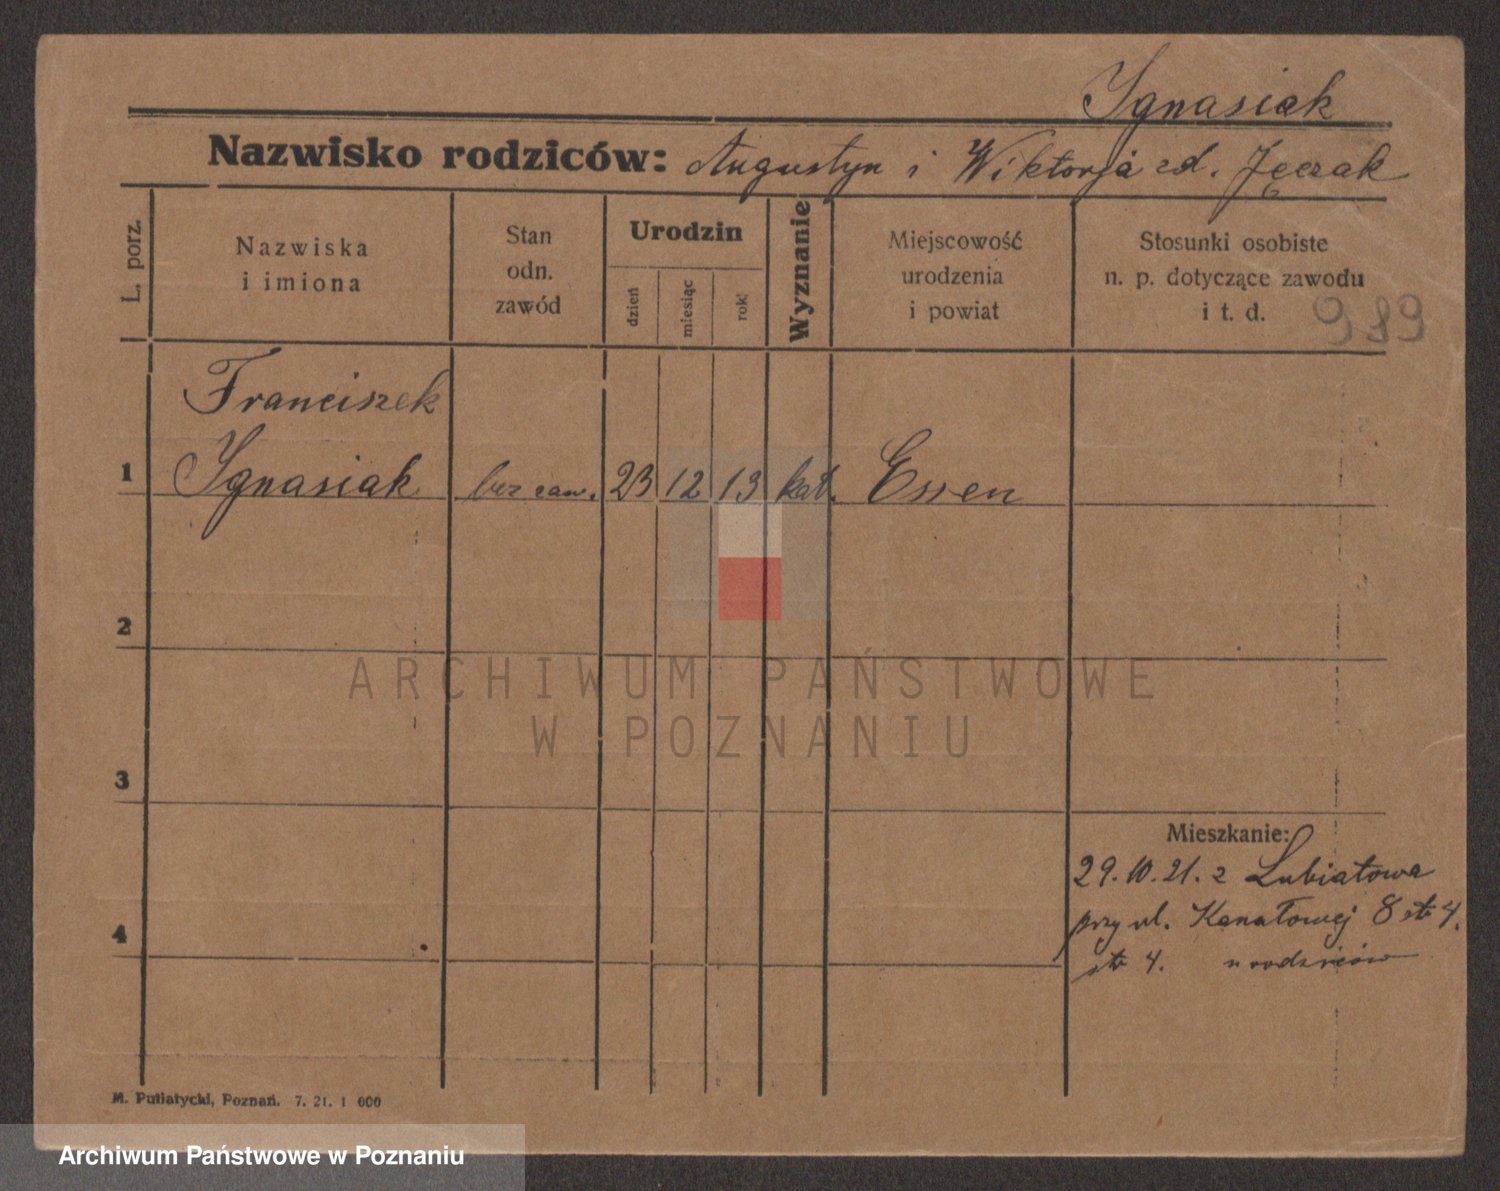 Ignasiak
Nazwisko rodziców: Augustyn i Wiktorja zd. Jęczak
L. porz.
Nazwiska
i imiona
Stan
odn.
zawód
Urodzin
dzień
miesiąc
rok
Wyznanie
Miejscowość
urodzenia
i powiat
Stosunki osobiste
n. p. dotyczące zawodu
i t. d.
989
Franciszek
1 Ignasiak bez zaw. 23 12 13 kat. Essen
2
3
Mieszkanie:
29.10.21. z Lubiatowa
przy ul. Kanałowej 8 str 4.
4
str 4. u rodziców
ARCHIWUM PAŃSTWOWE
W POZNANIU
M. Putiatycki, Poznań. 7. 21. 1 000
Archiwum Państwowe w Poznaniu